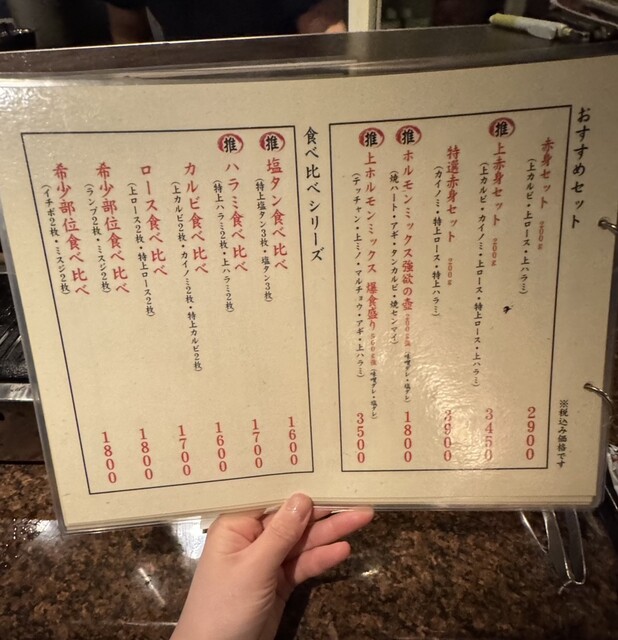 おすすめセット
赤身セット 200g
(上カルビ・上ロース・上ハラミ)
2900
推 上赤身セット 200g
(上カルビ・カイノミ・上ロース・特上ロース・上ハラミ)
3450
特選赤身セット 200g
(カイノミ・特上ロース・特上ハラミ)
3900
推 ホルモンミックス強欲の壺 (味噌ダレ・塩ダレ)
(焼ハート・アギ・タンカルビ・焼センマイ)
1800
推 上ホルモンミックス 爆食盛り (味噌ダレ・塩ダレ)
(テッチャン・上ミノ・マルチョウ・アギ・上ハラミ)
3500
※税込み価格です
食べ比べシリーズ
推 塩タン食べ比べ
(特上塩タン3枚・塩タン3枚)
1600
推 ハラミ食べ比べ
(特上ハラミ2枚・上ハラミ2枚)
1700
カルビ食べ比べ
(上カルビ2枚・カイノミ2枚・特上カルビ2枚)
1600
ロース食べ比べ
(上ロース2枚・特上ロース2枚)
1700
希少部位食べ比べ
(ランプ2枚・ミスジ2枚)
1800
希少部位食べ比べ
(イチボ2枚・ミスジ2枚)
1800